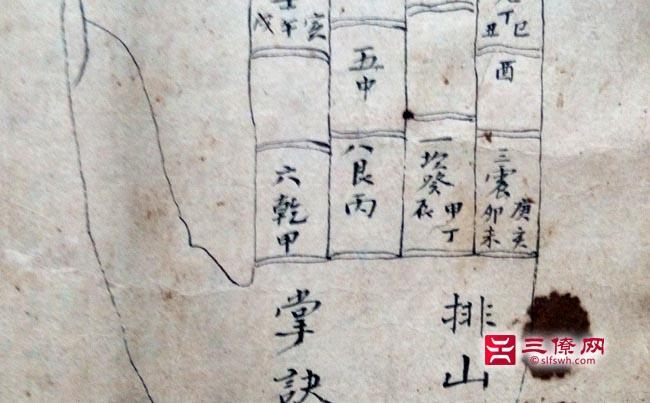 丁
丑 巳
酉
三震
庚亥
卯未
一坎癸
甲丁
辰
五中
八艮丙
壬午
戌 寅
六乾甲
排山
掌訣
三僚网
www.slfswh.com